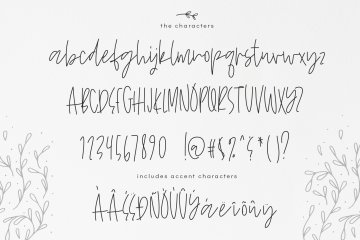 the characters
abcdefghijklmnopqrstuvwxyz
ABCDEFGHIJKLMNOPQRSTUVWXYZ
1234567890 !@#$%^&*()?
includes accent characters